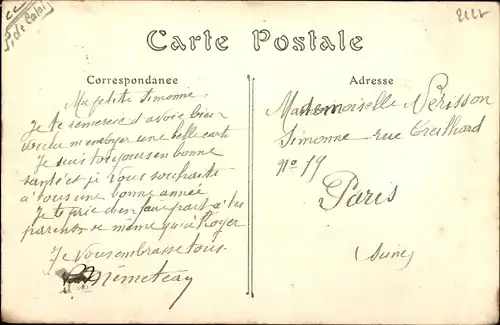 P. de Calais
2221
Carte Postale
Correspondance
Ma petite Simonne.
Je te remercie d'avoir bien
voulu m'envoyer une belle carte
Je suis toujours en bonne
santé et je vous souhaite
à tous une bonne année
Je te prie d'en faire part à tes
parents de même qu'à Roger
Je vous embrasse tous.
Adresse
Mademoiselle Périsson
Simonne rue Treilhard
No 19
Paris
(Seine)